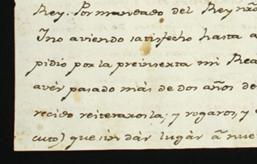 Rey. Por mandado del Rey nr̃o
Ino aviendo satisfecho hasta a
pidió por la preinserta mi Rea
aver pasado más de dos años de
recido reiterarosla; y rogaros, y
cuto) que sin dár lugár á nue